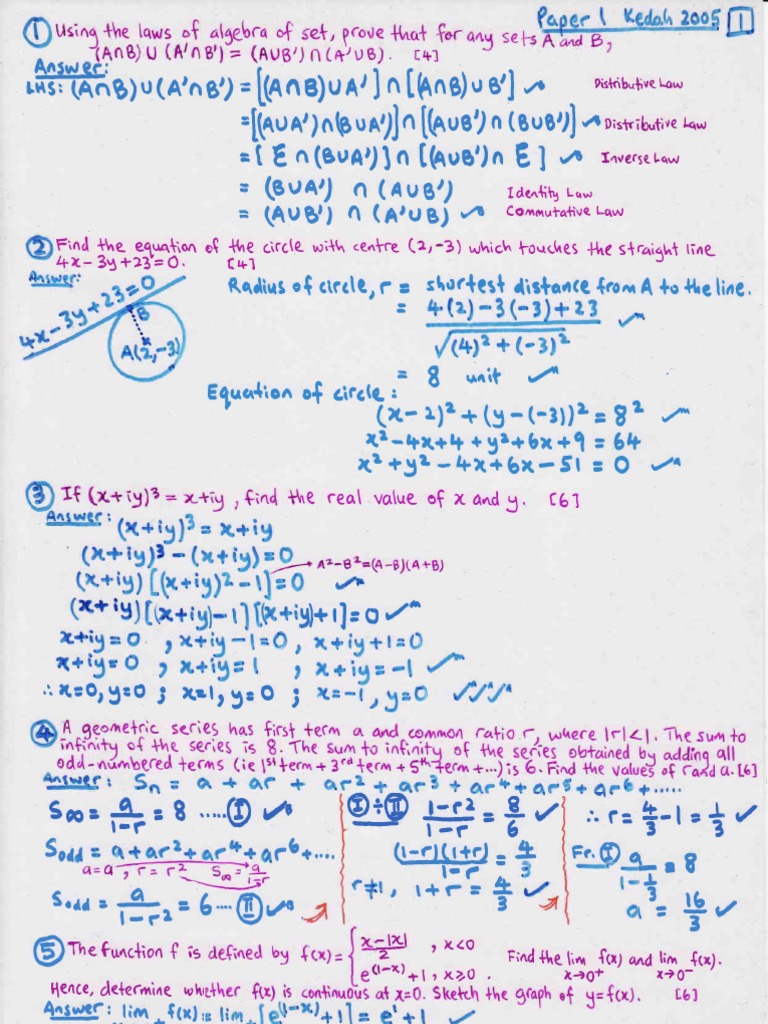 Paper 1 Kedah 2005 1
① Using the laws of algebra of set, prove that for any sets A and B,
(A∩B) ∪ (A'∩B') = (A∪B') ∩ (A'∪B). [4]
Answer:
LHS: (A∩B)∪(A'∩B') = [(A∩B)∪A'] ∩ [(A∩B)∪B'] Distributive Law
= [(A∪A')∩(B∪A')] ∩ [(A∪B')∩(B∪B')] Distributive Law
= [ℰ∩(B∪A')] ∩ [(A∪B')∩ℰ] Inverse Law
= (B∪A') ∩ (A∪B') Identity Law
= (A∪B') ∩ (A'∪B) Commutative Law
② Find the equation of the circle with centre (2,-3) which touches the straight line
4x-3y+23=0. [4]
Answer:
4x-3y+23=0
B
A(2,-3)
Radius of circle, r = shortest distance from A to the line.
= 4(2)-3(-3)+23 / √(4)²+(-3)²
= 8 unit
Equation of circle:
(x-2)²+(y-(-3))² = 8²
x²-4x+4+y²+6x+9 = 64
x²+y²-4x+6x-51 = 0
③ If (x+iy)³ = x+iy, find the real value of x and y. [6]
Answer:
(x+iy)³ = x+iy
(x+iy)³-(x+iy)=0
(x+iy)[(x+iy)²-1]=0 → A²-B²=(A-B)(A+B)
(x+iy)[(x+iy)-1][(x+iy)+1]=0
x+iy=0 , x+iy-1=0, x+iy+1=0
x+iy=0 , x+iy=1 , x+iy=-1
∴ x=0, y=0 ; x=1, y=0 ; x=-1, y=0
④ A geometric series has first term a and common ratio r, where |r|<1. The sum to
infinity of the series is 8. The sum to infinity of the series obtained by adding all
odd-numbered terms (ie 1st term + 3rd term + 5th term +...) is 6. Find the values of r and a. [6]
Answer: Sn = a + ar + ar² + ar³ + ar⁴ + ar⁵ + ar⁶ + .....
S∞ = a/1-r = 8 ..... Ⓘ
Sodd = a + ar² + ar⁴ + ar⁶ + ....
a=a , r=r² S∞ = a/1-r
Sodd = a/1-r² = 6 .... Ⅱ
Ⓘ ÷ Ⅱ 1-r²/1-r = 8/6
(1-r)(1+r)/1-r = 4/3
r≠1, 1+r = 4/3
∴ r = 4/3 - 1 = 1/3
Fr. Ⓘ a/1-1/3 = 8
a = 16/3
⑤ The function f is defined by f(x) = { x-|x|/2 , x<0
e^(1-x)+1, x≥0 . Find the lim x→0⁺ f(x) and lim x→0⁻ f(x).
Hence, determine whether f(x) is continuous at x=0. Sketch the graph of y=f(x). [6]
Answer: lim f(x) = lim [e^(1-x)+1] = e¹+1